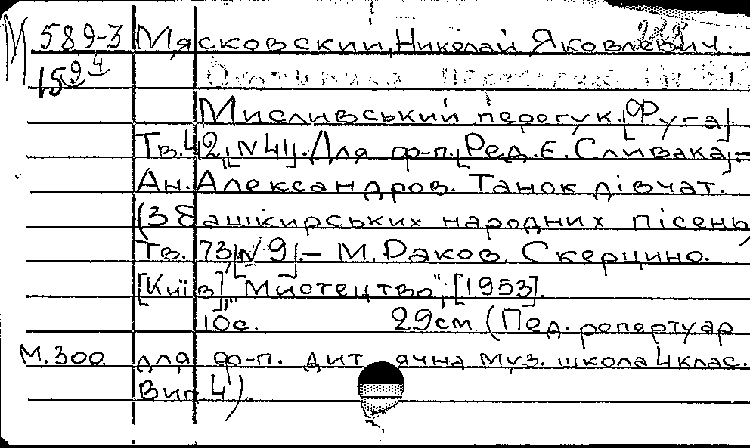 М 589-3 Мясковский, Николай Яковлевич.
15
Мисливський перегук. [Фуга]
Тв. 42, [N 4]. Для ф-п. [Ред. Є. Сливака] =
Ан. Александров. Танок дівчат.
(З башкирських народних пісень,
Тв. 73, [N 9]. – М. Раков. Скерцино.
[Київ], "Мистецтво", [1953].
10с. 29см (Пед. репертуар
М.300 для ф-п. Дитячна муз. школа 4 клас.
Вип 4).